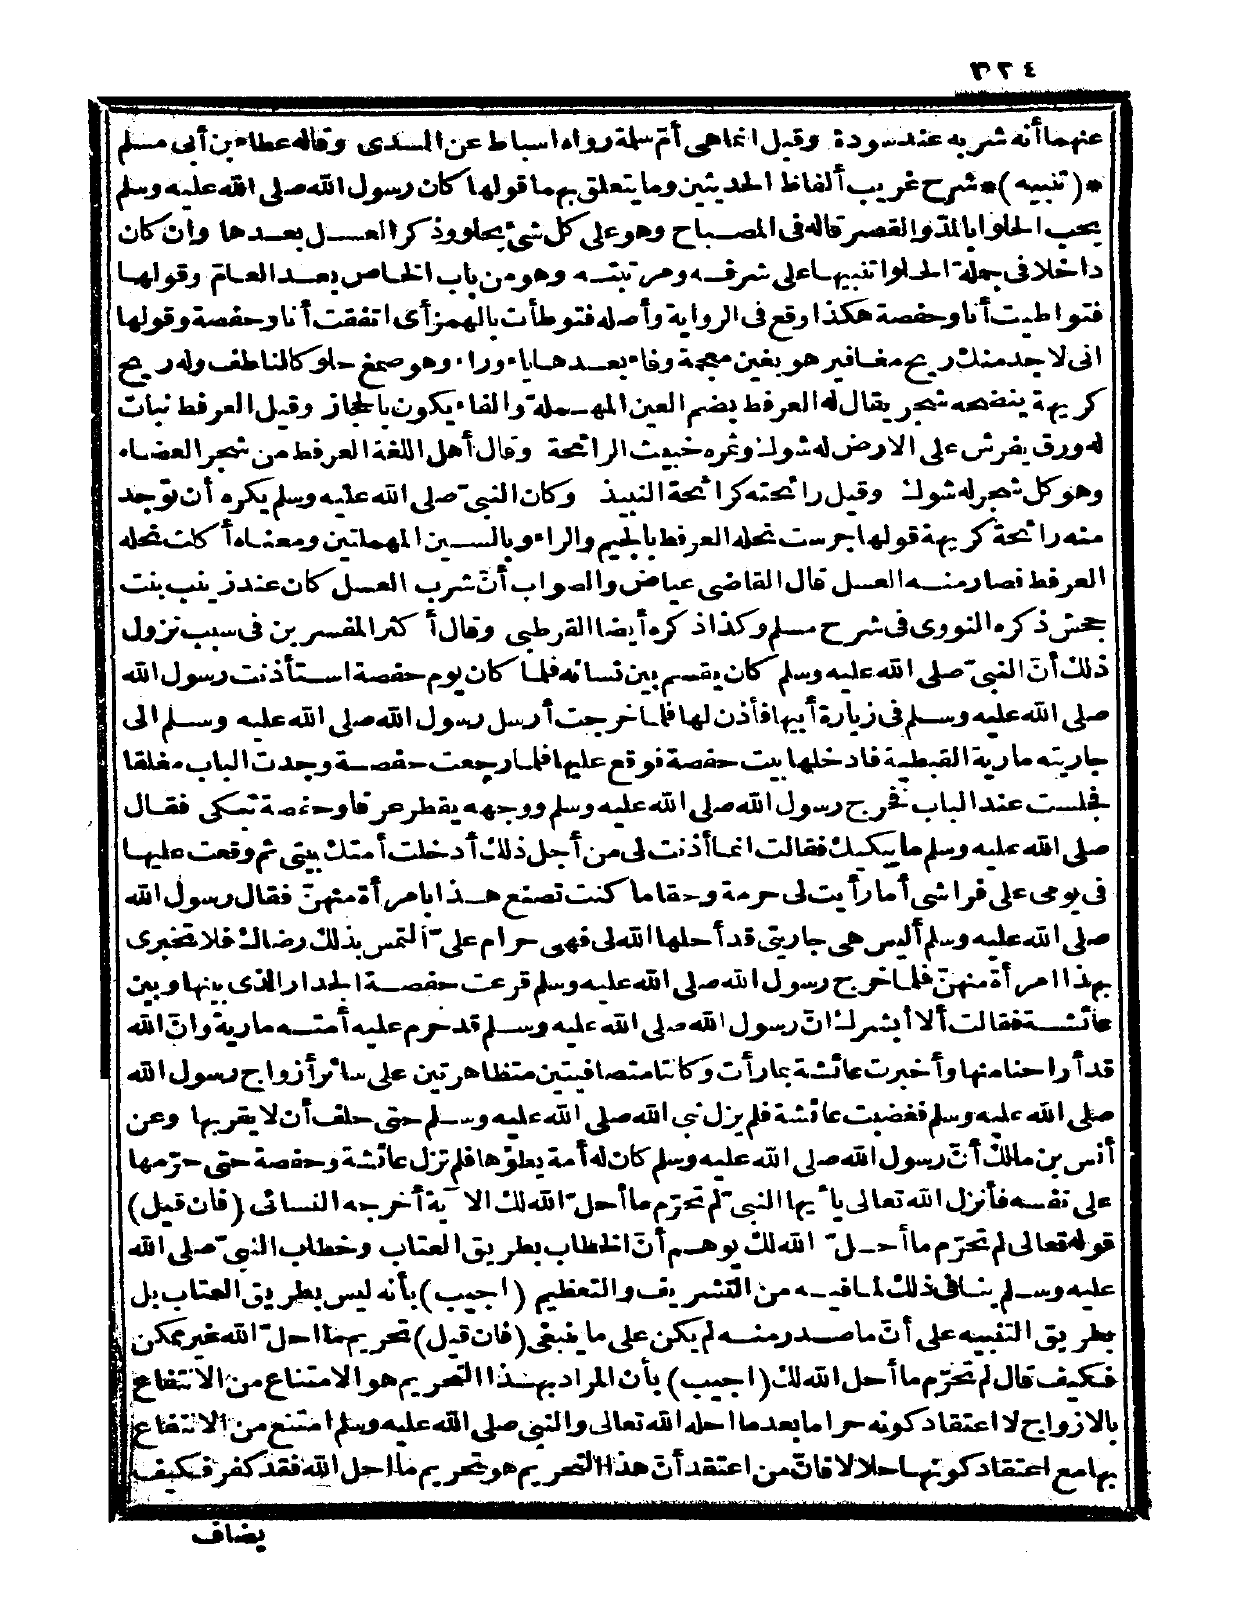 ٣٢٤
عنهما أنه شربه عند سودة وقيل انما هى أمّ سلمة رواه اسباط عن السدى وقاله عطاء بن أبى مسلم
*(تنبيه)* شرح غريب ألفاظ الحديثين وما يتعلق بهما قولها كان رسول الله صلى الله عليه وسلم
يحب الحلوا بالمدّ والقصر قاله فى المصباح وهو على كل شئ يحلو وذكر العسل بعدها وان كان
داخلا فى جملة الحلوا تنبيها على شرفه ومرتبته وهو من باب الخاص بعد العامّ وقولها
فتواطيت أنا وحفصة هكذا وقع فى الرواية وأصله فتوطأت بالهمز أى اتفقت أنا وحفصة وقولها
انى لاجد منك ريح مغافير هو بغين معجمة وفاء بعدها ياء وراء وهو صمغ حلو كالناطف وله ريح
كريهة ينضحه شجر يقال له العرفط بضم العين المهملة والفاء يكون بالحجاز وقيل العرفط نبات
له ورق يفرش على الارض له شوك وثمره خبيث الرائحة وقال أهل اللغة العرفط من شجر العضاه
وهو كل شجر له شوك وقيل رائحته كرائحة النبيذ وكان النبىّ صلى الله عليه وسلم يكره أن توجد
منه رائحة كريهة قولها جرست نحله العرفط بالجيم والراء وبالسين المهملتين ومعناه أكلت نحله
العرفط فصار منه العسل قال القاضى عياض والصواب أنّ شرب العسل كان عند زينب بنت
جحش ذكره النووى فى شرح مسلم وكذا ذكره أيضا القرطبى وقال أكثر المفسرين فى سبب نزول
ذلك أنّ النبىّ صلى الله عليه وسلم كان يقسم بين نسائه فلما كان يوم حفصة استأذنت رسول الله
صلى الله عليه وسلم فى زيارة أبيها فأذن لها فلما خرجت أرسل رسول الله صلى الله عليه وسلم الى
جاريته مارية القبطية فادخلها بيت حفصة فوقع عليها فلما رجعت حفصة وجدت الباب مغلقا
فجلست عند الباب فخرج رسول الله صلى الله عليه وسلم ووجهه يقطر عرقا وحفصة تبكى فقال
صلى الله عليه وسلم ما يبكيك فقالت انما أذنت لى من أجل ذلك أدخلت أمتك بيتى ثم وقعت عليها
فى يومى على فراشى أما رأيت لى حرمة وحقا ما كنت تصنع هذا بامرأة منهنّ فقال رسول الله
صلى الله عليه وسلم أليس هى جاريتى قد أحلها الله لى فهى حرام علىّ ألتمس بذلك رضاك فلا تخبرى
بهذا امرأة منهنّ فلما خرج رسول الله صلى الله عليه وسلم قرعت حفصة الجدار الذى بينها وبين
عائشة فقالت ألا أبشرك انّ رسول الله صلى الله عليه وسلم قد حرم عليه أمته مارية وانّ الله
قد أراحنا منها وأخبرت عائشة بما رأت وكانتا متصافيتين متظاهرتين على سائر أزواج رسول الله
صلى الله عليه وسلم فغضبت عائشة فلم يزل نبى الله صلى الله عليه وسلم حتى حلف أن لا يقربها وعن
أنس بن مالك أنّ رسول الله صلى الله عليه وسلم كان له أمة يطؤها فلم تزل عائشة وحفصة حتى حرّمها
على نفسه فأنزل الله تعالى يا أيها النبىّ لم تحرّم ما أحلّ الله لك الآية أخرجه النسائى (فان قيل)
قوله تعالى لم تحرّم ما أحلّ الله لك يوهم أنّ الخطاب بطريق العتاب وخطاب النبىّ صلى الله
عليه وسلم ينافى ذلك لما فيه من التشريف والتعظيم (اجيب) بأنه ليس بطريق العتاب بل
بطريق التنبيه على أنّ ما صدر منه لم يكن على ما ينبغى (فان قيل) تحريم ما احلّ الله غير ممكن
فكيف قال لم تحرّم ما أحل الله لك (اجيب) بأن المراد بهذا التحريم هو الامتناع من الانتفاع
بالازواج لا اعتقاد كونه حراما بعد ما احله الله تعالى والنبى صلى الله عليه وسلم امتنع من الانتفاع
بها مع اعتقاد كونها حلالا فانّ من اعتقد أنّ هذا التحريم هو تحريم ما احل الله فقد كفر فكيف
يضاف